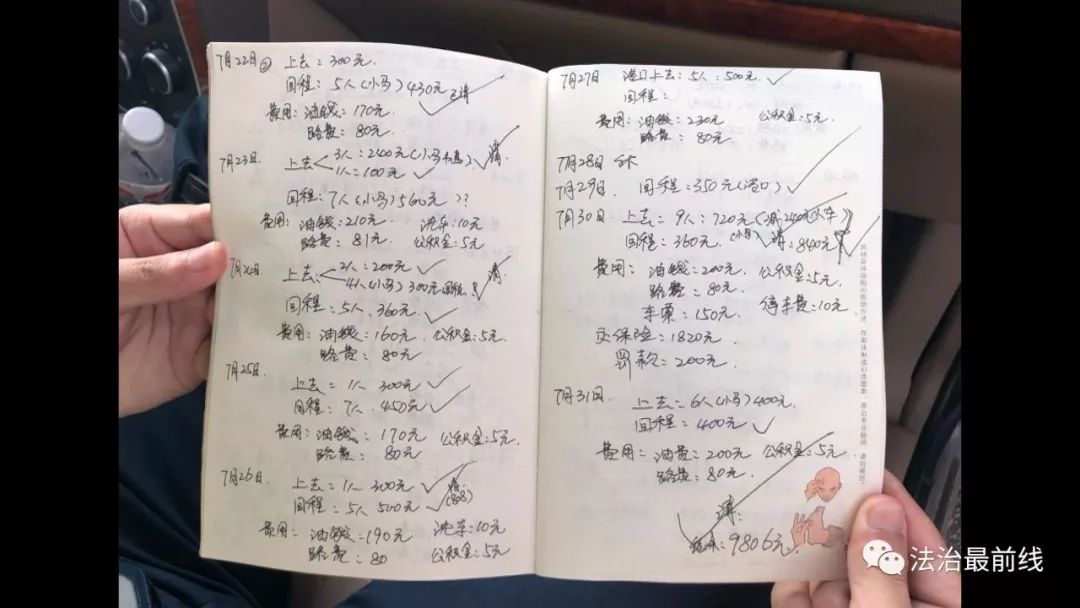 7月22日② 上去：300元
回程：5人(小马)430元 已清
费用：油钱：170元.
路费：80元.
7月23日. 上去 3人：200元(小马) 清.
1人=100元
回程：7人(小马)560元 ??
费用：油钱：210元 洗车：10元
路费：81元. 公积金：5元
7月24日 上去 2人：200元
4人(小马)300元 清
回程=5人、360元
费用：油钱：160元. 公积金：5元
路费：80元
7月25日. 上去=1人 300元
回程：7人.450元
费用：油钱：170元 公积金：5元.
路费：80元
7月26日. 上去=1人 300元
回程=5人 500元 清(808)
费用：油钱=190元 洗车=10元
路费=80 公积金：5元
7月27日 港口上去：5人：500元
回程：
费用：油钱：230元 公积金：5元.
路费：80元
7月28日 休
7月29日. 回程=350元(港口)
7月30日 上去=9人：720元(减240元人车)
回程=360元.(小马) 清：840元
费用：油钱=200元. 公积金：5元
路费=80元.
车票=150元. 停车费：10元
交保险=1820元
罚款=200元.
7月31日. 上去=6人(小马)400元.
回程=400元
费用：油费=200元 公积金：5元
路费：80元.
清：
9806元
法治最前线